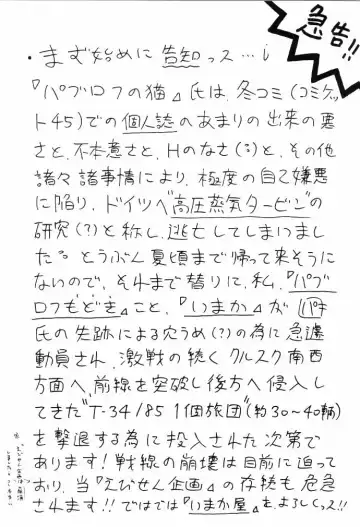 急告!!
・まず始めに告知っス…!
『パブロフの猫』氏は、冬コミ(コミケッ
ト45)での個人誌のあまりの出来の悪
さと、不本意さと、Hのなさ(?)と、その他
諸々諸事情により、極度の自己嫌悪
に陥り、ドイツへ"高圧蒸気タービン"の
研究(?)と称し、逃亡してしまいまし
た。とうぶん夏頃まで帰って来そうに
ないので、それまで替りに、私、『パブ
ロフもどき』こと、『いまか』が
氏の失跡による穴うめ(?)の為に急遽
動員され、激戦の続くクルスク南西
方面へ、前線を突破し後方へ侵入し
てきた"T-34/85 1個旅団"(約30〜40輌)
を撃退する為に投入された次第で
あります!戦線の崩壊は目前に迫って
おり、当『えびせん企画』の存続も危急
されます!!ではでは『いまか屋』を、よろしくっス!!